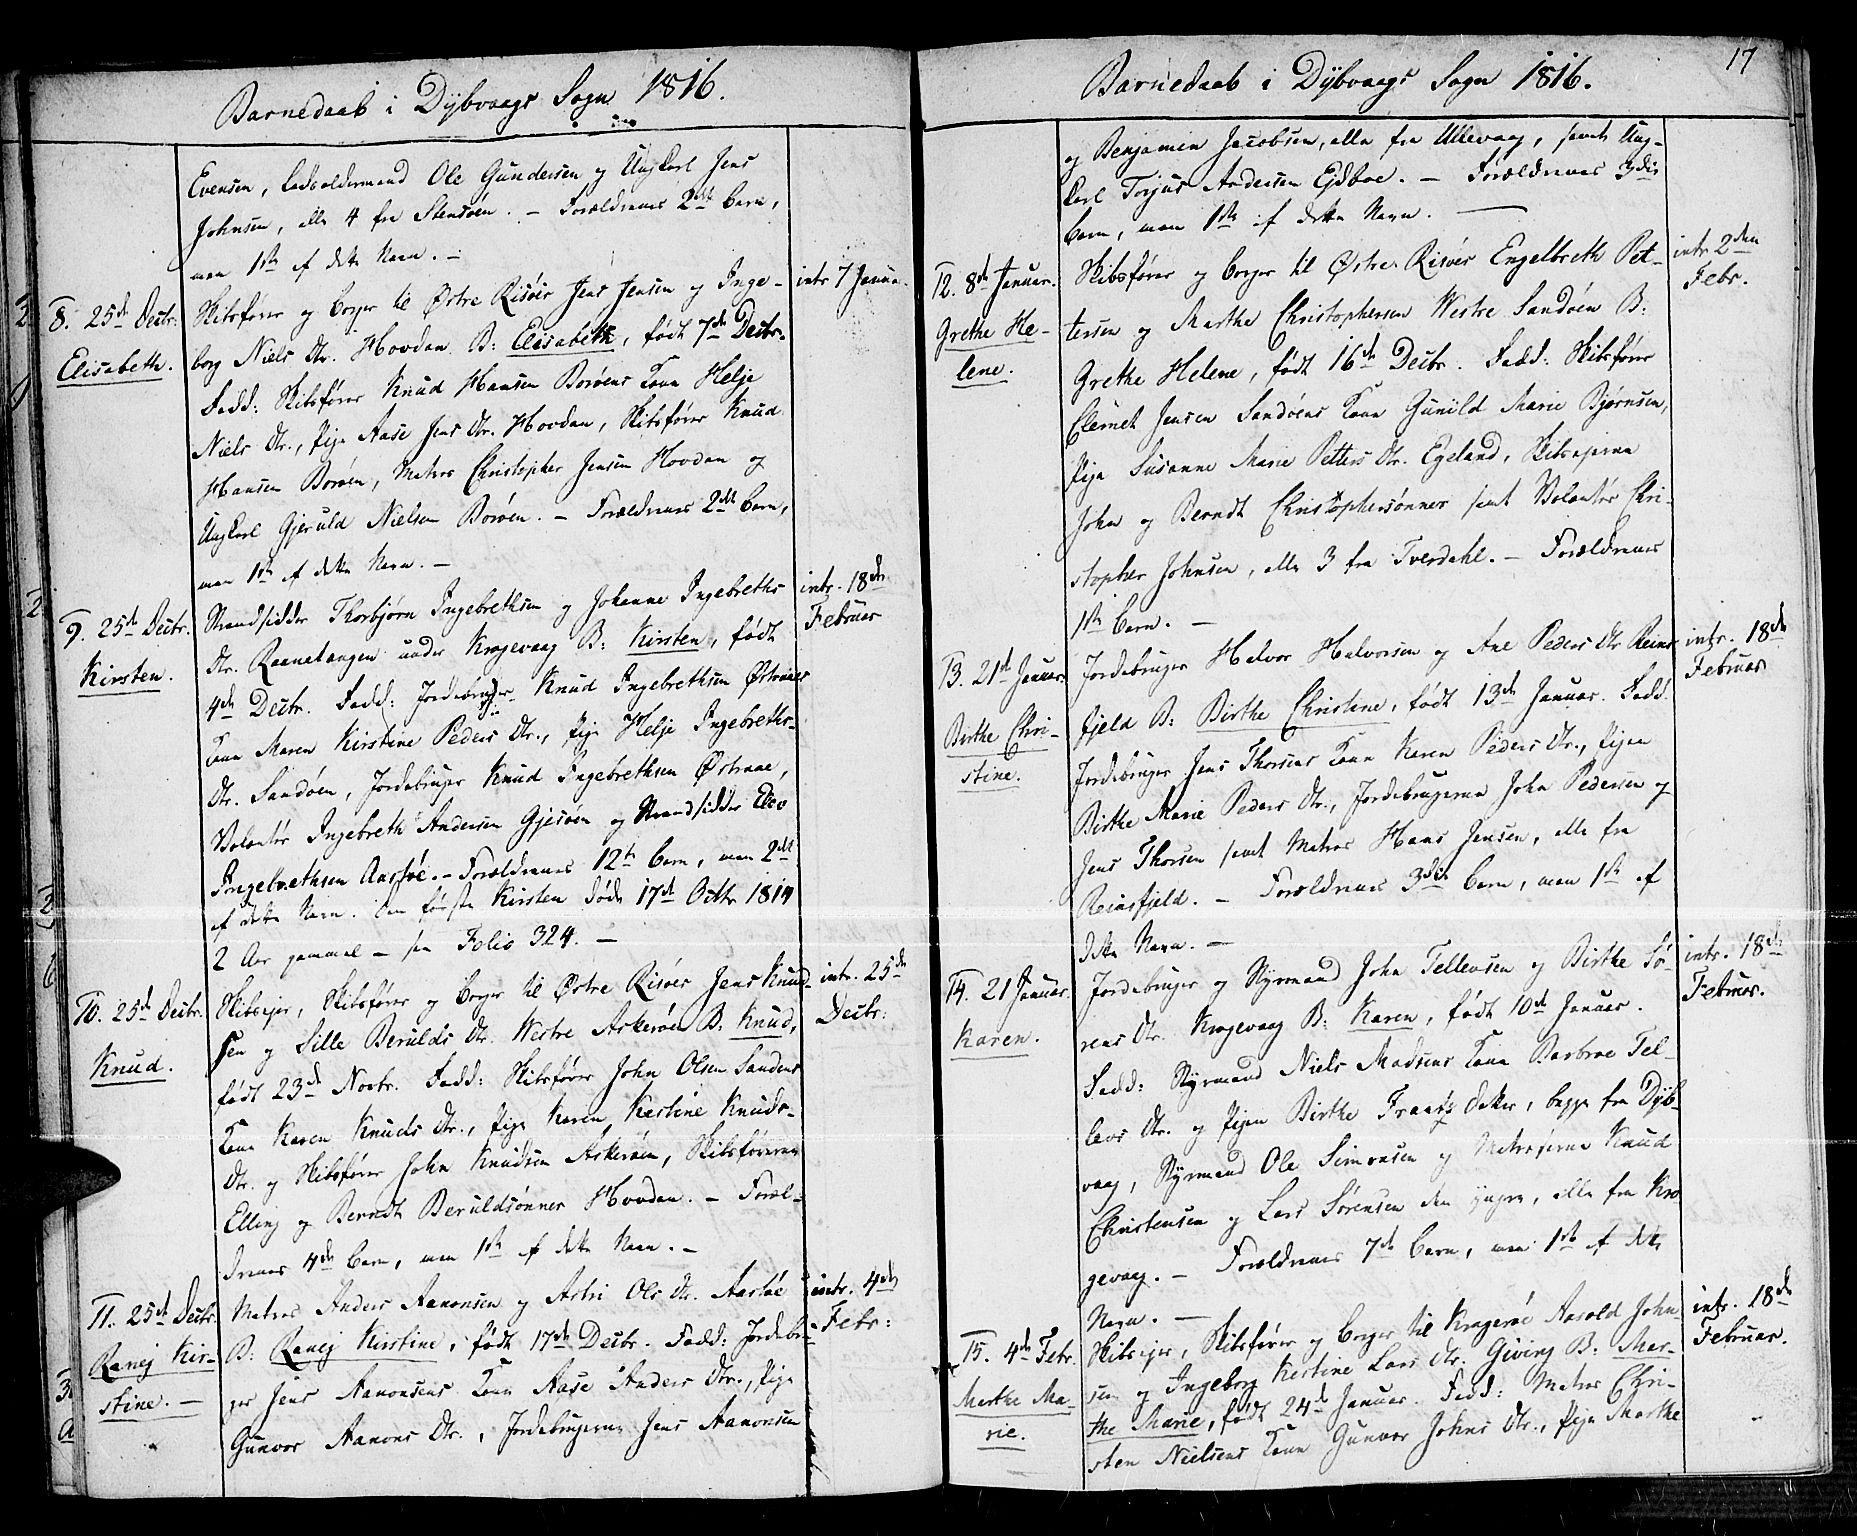 Barnedaab i Dÿbvaags Sogn 1816.
Evensen, Ladsoldermand Ole Gundersen og Ungkarl Jens
Johnsen, alle 4 fra Stensøen. – Forældrenes 2det Barn,
men 1ste af dette Navn. –
8. 25de Decbr.
Elisabeth.
Skibsfører og borger til Østre Risöer Jens Jensen og Inge-
borg Niels Dtr. Hovdan B: Elisabeth, født 7de Decbr.
Fadd: Skibsfører Knud Hansen Borøens Kone Helje
Niels Dtr., Pige Aase Jens Dtr. Hovdan, Skibsfører Knud
Hansen Borøen, Matros Christopher Jensen Hovdan og
Ungkarl Gjeruld Nielsen Borøen. – Forældrenes 2det Barn,
men 1ste af dette Navn. –
intr 7 Januar.
9. 25de Decbr.
Kirsten.
Strandsidder Thorbjørn Ingebrethsen og Johanne Ingebreths
Dtr. Raanetangen under Krogevaag B: Kirsten, født
4de Decbr. Fadd: Jordebruger Knud Ingebrethsen Østraaes
Kone Maren Kirstine Peders Dtr., Pige Helje Ingebreths-
Dtr. Sandøen, Jordebruger Knud Ingebrethsen Østraae,
Volontør Ingebreth Andersen Gjesøen og Strandsidder Elev
Ingebrethsen Aastøe. – Forældrenes 12te Barn, men 2det
af dette Navn. Den første Kirsten døde 17de Octbr 1814
2 Aar gammel – see Folio 324. –
intr. 18de
Februar
10. 25de Decbr.
Knud.
Skibseier, Skibsfører og borger til Østre Risöer Jens Knud-
sen og Sille Berulds Dtr. Westre Askerøen B: Knud,
født 23de Novbr. Fadd: Skibsfører John Olsen Sandens
Kone Karen Knuds Dtr., Pige Karen Kestine Knuds-
Dtr. og Skibsfører John Knudsen Askerøen, Skibsførerne
Elling og Berndt Beruldsønner Hovdan. – Foræl-
drenes 4de Barn, men 1ste af dette Navn. –
intr. 25de
Decbr:
11. 25de Decbr.
Ranej Kir-
stine. –
Matros Anders Aanonsen og Astri Ols Dtr. Aastøe
B: Ranej Kirstine, født 17de Decbr. Fadd: Jordebru-
ger Jens Aanonsens Kone Aase Anders Dtr., Pige
Gunvor Aanons Dtr., Jordebrugerne Jens Aanonsen
intr. 4de
Febr:
Barnedaab i Dÿbvaags Sogn 1816.
17
og Benjamin Jacobsen, alle fra Ullevaag, samt Ung-
karl Torjus Andersen Ejdboe. – Forældrenes 3die
Barn, men 1ste af dette Navn. –
12. 8de Januar.
Grethe He-
lene.
Skibsfører og borger til Østre Risöer Engelbreth Pet-
tersen og Marthe Christophersen Westre Sandøen B:
Grethe Helene, født 16de Decbr. Fadd: Skibsfører
Clemet Jensen Sandøens Kone Gunild Marie Bjørnsen,
Pige Susanne Marie Petters Dtr. Egeland, Skibseierne
John og Berndt Christophersønner samt Volontør Chri-
stopher Johnsen, alle 3 fra Tverdahl. – Forældrenes
1ste Barn. –
intr. 2den
Febr.
13. 21de Januar.
Birthe Chri-
stine.
Jordebruger Halvor Halvorsen og Ane Peders Dtr Reins-
fjeld B: Birthe Christine, født 13de Januar. Fadd.
Jordebruger Jens Thorsens Kone Karen Peders Dtr., Pigen
Birthe Marie Peders Dtr., Jordebrugerne John Pedersen og
Jens Thorsen samt Matros Hans Jensen, alle fra
Reinsfjeld. – Forældrenes 3die Barn, men 1ste af
dette Navn. –
intr. 18de
Februar
14. 21 Januar.
Karen.
Jordebruger og Styrmand John Tellevsen og Birthe Sö-
rens Dtr. Krogevaag B: Karen, født 10de Januar.
Fadd: Styrmand Niels Madsens Kone Barbroe Tel-
levs Dtr. og Pigen Birthe Frantz Datter, begge fra Dÿb-
vaag, Styrmand Ole Simonsen og Matroserne Knud
Christensen og Lars Sørensen den yngre, alle fra Kro-
gevaag. – Forældrenes 7de Barn, men 1ste af dette
Navn. –
intr. 18de
Februar.
15. 4de Febr.
Marthe Ma-
rie.
Skibseier, Skibsfører og borger til Kragerøe Aarold John-
sen og Ingeborg Kestine Lars Dtr. Giving B: Mar-
the Marie, født 24de Januar. Fadd: Matros Chri-
sten Nielsens Kone Gunvor Johns Dtr., Pige Marthe
intr. 18de
Februar.